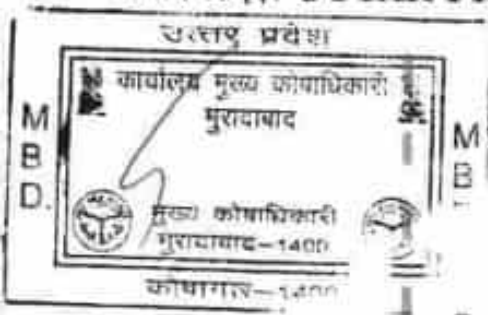 उत्तर प्रदेश
कार्यालय मुख्य कोषाधिकारी
मुरादाबाद
M B D.
M B
मुख्य कोषाधिकारी
मुरादाबाद-1400
कोषागार-1400